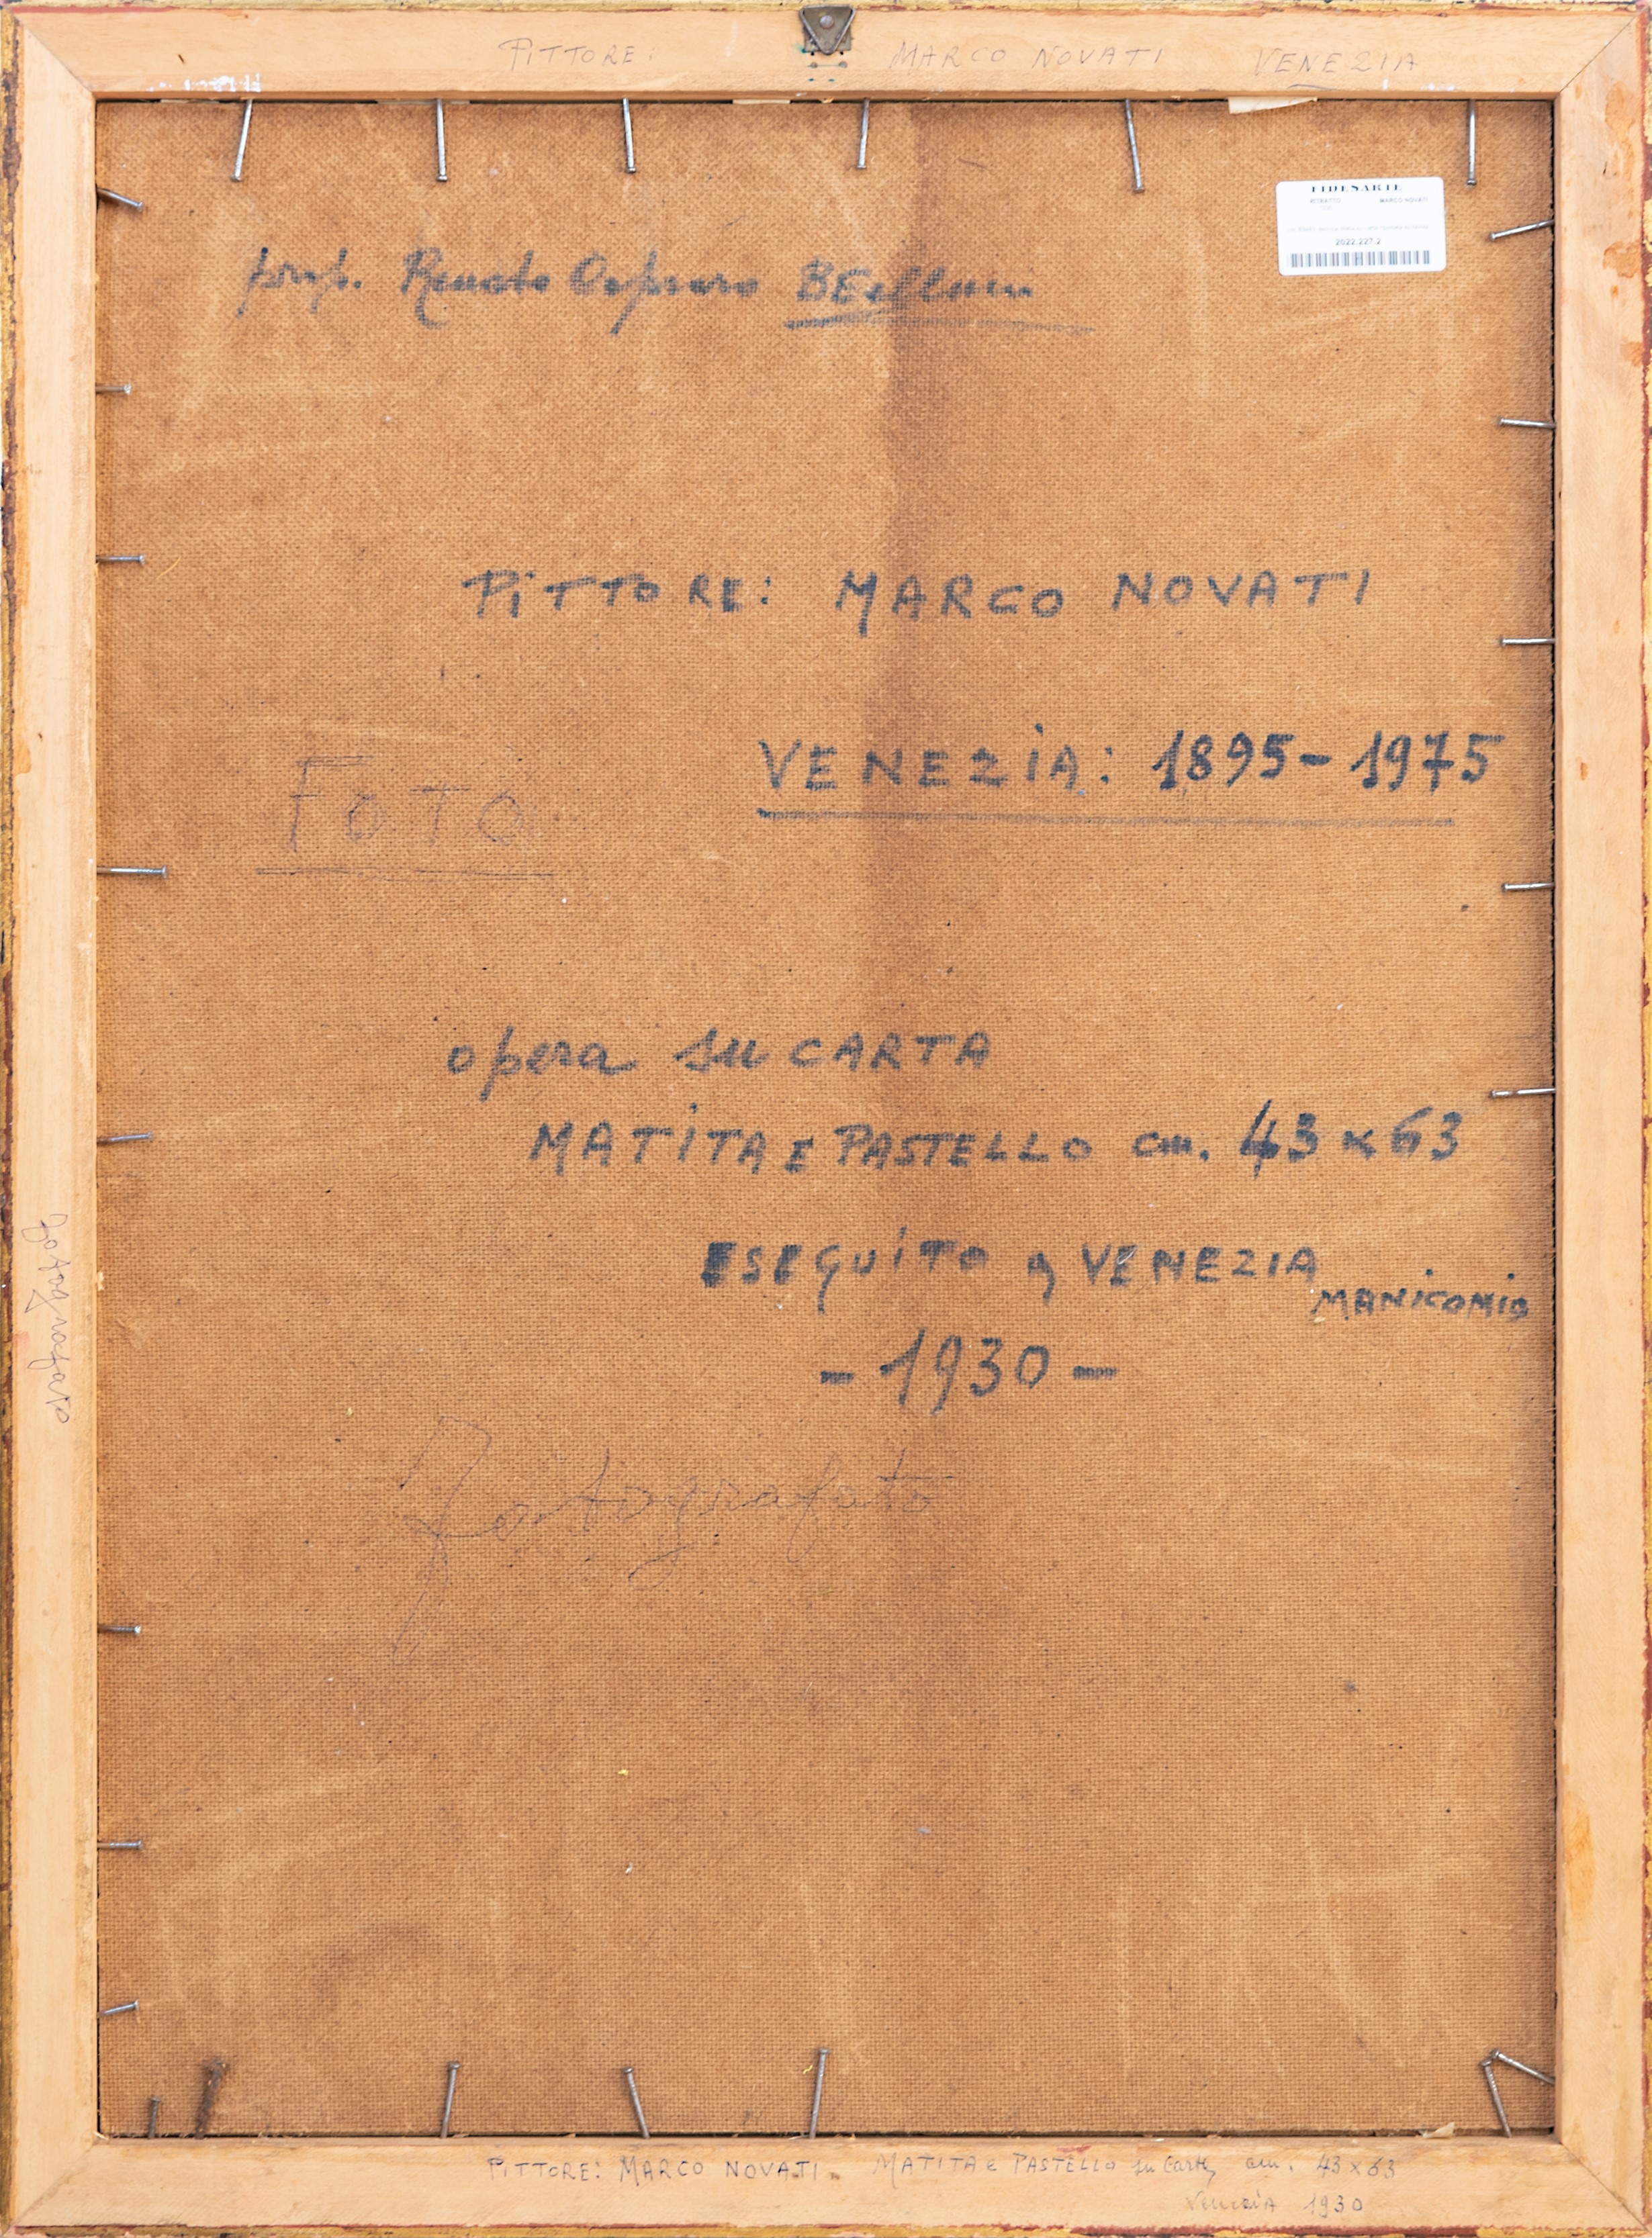 PITTORE: MARCO NOVATI VENEZIA
FIDESARTE
RITRATTO MARCO NOVATI
2022.227.2
prop. Renato BEllum
PiTTORE: MARCO NOVATI
VENEZiA: 1895-1975
FOTO
opera su CARTA
MATiTA E PASTELLO cm. 43x63
ESEguiTo a VENEZIA
MANiCOMiO
-1930-
fotografato
Fotografato
PiTTORE: MARCO NOVATI. MATITA e PASTELLO su Carta cm. 43x63
VeneziA 1930